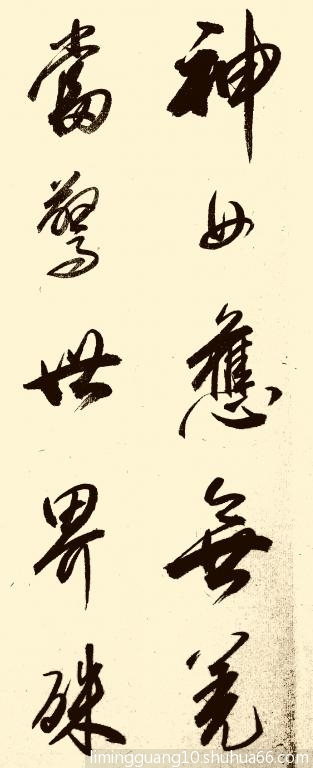 神女應無恙
當驚世界殊
limingguang10.shuhua66.com